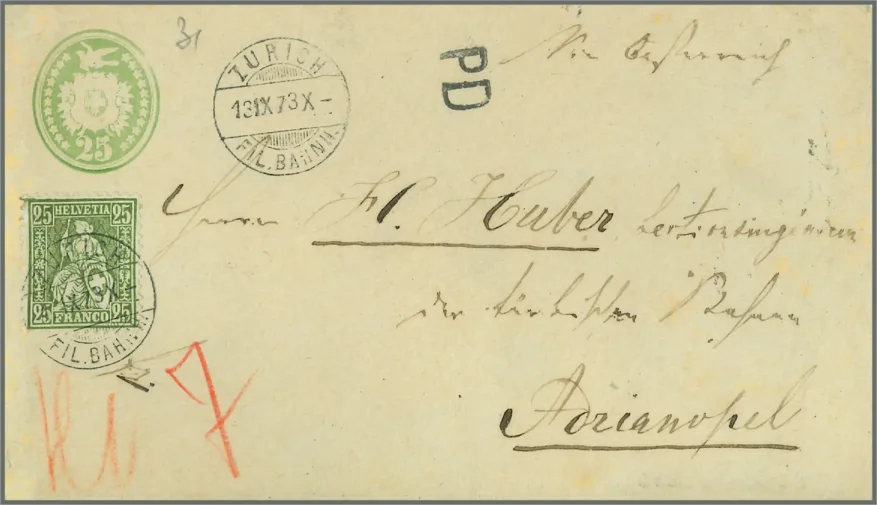 31
25
ZURICH
13 IX 73 X –
FIL. BAHNH.
PD
Via Oesterreich
25 HELVETIA 25
25 FRANCO 25
FIL. BAHNH.
Herrn Fl. Huber Sectionsingenieur
der türkischen Bahnen
Adrianopel
7